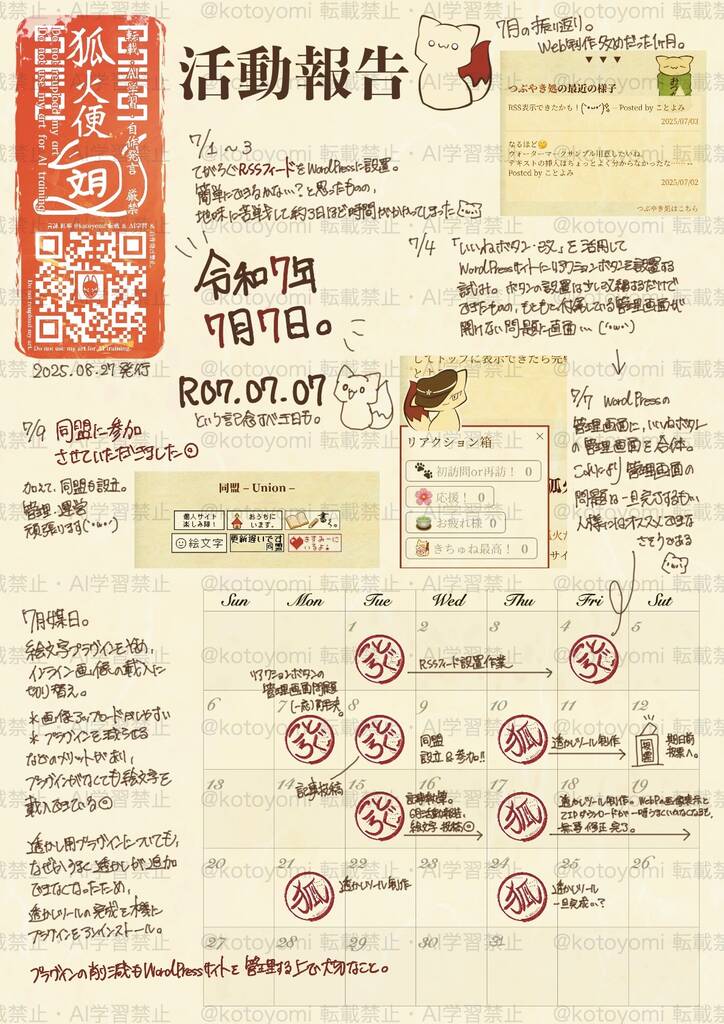 活動報告
狐火便
転載・AI学習・自作発言 厳禁
Do not repload my art
Do not use my art for AI training
文月
Do not repload my art
Do not use my art for AI training.
2025.08.27 発行
7月の振り返り。
Web制作多めだった1か月。
つぶやき処の最近の様子
RSS表示できたかも！(*•ω•)ꕤ – Posted by ことよみ
2025/07/03
なるほど
ウォーターマークサンプル用意したいね
テキストの挿入はちょっとよく分からなかったな……
Posted by ことよみ
2025/07/02
つぶやき処はこちら
7/1〜3
てがろぐRSSフィードをWordPressに設置。
簡単にできるかない？と思ったものの、
地味に苦戦して約3日ほど時間がかかってしまった
令和7年
7月7日。
R07.07.07
という記念すべき日も。
7/4 「いいねボタン・改」を活用して
WordPressサイトにリアクションボタンを設置する
試み。ボタンの設置は
できたものの、もともと付属している管理画面が
開けない問題に直面… (•ω•)
7/7 WordPressの
管理画面に、いいねボタン
の管理画面を合体。
管理画面の
問題は一旦完了するも
人様にはオススメできな
さそうである
してトップに表示できたら完
リアクション箱
×
初訪問or再訪！ 0
応援！ 0
お疲れ様 0
きちゅね最高！ 0
7/9 同盟に参加
させていただきました
加えて、同盟も設立。
管理・運営
頑張ります(•ω•)
同盟 – Union –
個人サイト
楽しみ隊！
おうちに
います。
書く。
絵文字
更新遅いです
同盟
きすみーに
いるよ。
7月媒日。
絵文字プラグインをやめ、
インライン画像の載入に
切り替え。
＊画像アップロードがしやすい
＊プラグインを減らせる
などのメリットがあり、
プラグインがなくても絵文字を
載入できている
透かし用プラグインについても、
なぜかうまく透かしが追加
できなくなったため、
透かしツールの完成を機に
プラグインをアンインストール。
プラグインの削減もWordPressサイトを管理する上で大切なこと。
Sun Mon Tue Wed Thu Fri Sat
1 2 3 4 5
RSSフィード設置作業
6 7 8 9 10 11 12
リアクションボタンの
管理画面問題
(一応)解決。
同盟
設立&参加!!
狐
透かしツール制作
投票
期日前
投票へ。
13 14 15 16 17 18 19
記事投稿
記事執筆。
6月活動報告、
絵文字 投稿
狐
透かしツール制作。WebPの画像表示と
ZIPダウンロードが一時うまくいかなくなるも、
無事 修正 完了。
20 21 22 23 24 25 26
狐
透かしツール制作
狐
透かしツール
一旦完成か？
27 28 29 30 31
@kotoyomi 転載禁止・AI学習禁止